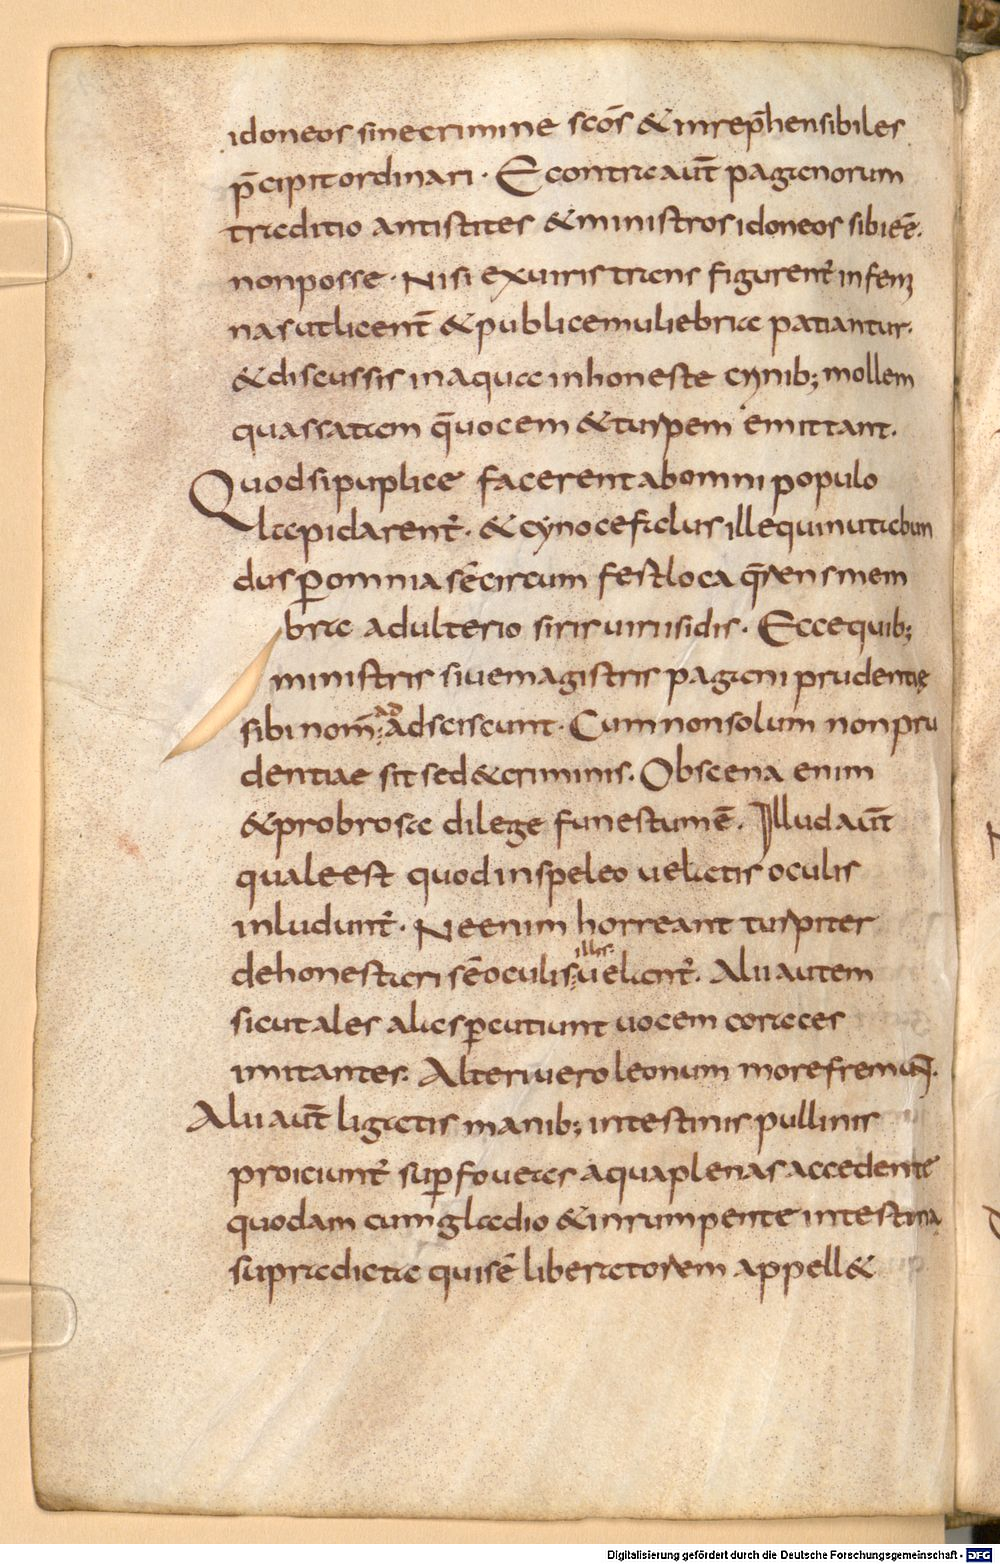 idoneos sine crimine scōs & inrep̄hensibiles
p̄cipit ordinari · E contra aut̄ paganorum
traditio antistites & ministros idoneos sibi eē.
non posse · Nisi ex uiris trans figurent̄ in femi
nas ut licent̄ & publice muliebria patiantur·
& discussis in aqua inhoneste crinib; mollem
quassatam q̄ uocem & turpem emittant.
Quod si puplice facerent ab omni populo
lapidarent̄ · & cynocefalus ille qui nutabun
dus ꝑ omnia sē circum fest loca q̄rens mem
bra adulterio siris uiri isidis · Ecce quib;
ministris siue magistris pagani prudentię
sibi nom̄ ad adsciscunt · Cum non solum non pru
dentiae sit sed & criminis. Obscena enim
& probrosa di lege funestum ē. Illud aut̄
quale est quod in speleo uelatis oculis
inludunt̄ · Ne enim horreant turpiter
dehonestari sē oculis illis uelant̄. Alii autem
sicut ales alas ꝑcutiunt uocem coraces
imitantes. Alteri uero leonum more fremunt.
Alii aut̄ ligatis manib; intestinis pullinis
proiciunt̄ suꝑ foueas aqua plenas accedente
quodam cum gladio & inrumpente intestina
supradicta qui sē liberatorem appell&
Digitalisierung gefördert durch die Deutsche Forschungsgemeinschaft - DFG